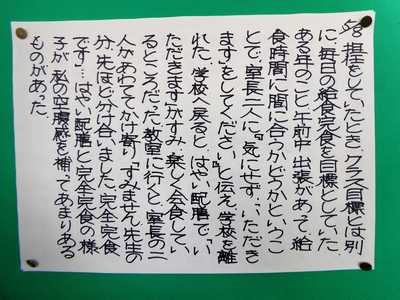 58 担任をしていたとき、クラス目標とは別
に、毎日の給食完食を目標としていた。
ある年のこと、午前中出張があって、給
食時間に間に合うかどうかというこ
とで、室長二人に『気にせず…いただき
ます』をしてください。』と伝え学校を離
れた。学校へ戻ると、はやい配膳で「い
ただきます」がすみ、楽しく会食してい
るところだった。教室に行くと、室長の二
人があわててかけ寄り「すみません、先生の
分、先ほど分け合いました。完全完食
です…」はやい配膳と完全完食の様
子が、私の空腹感を補ってあまりある
ものがあった。